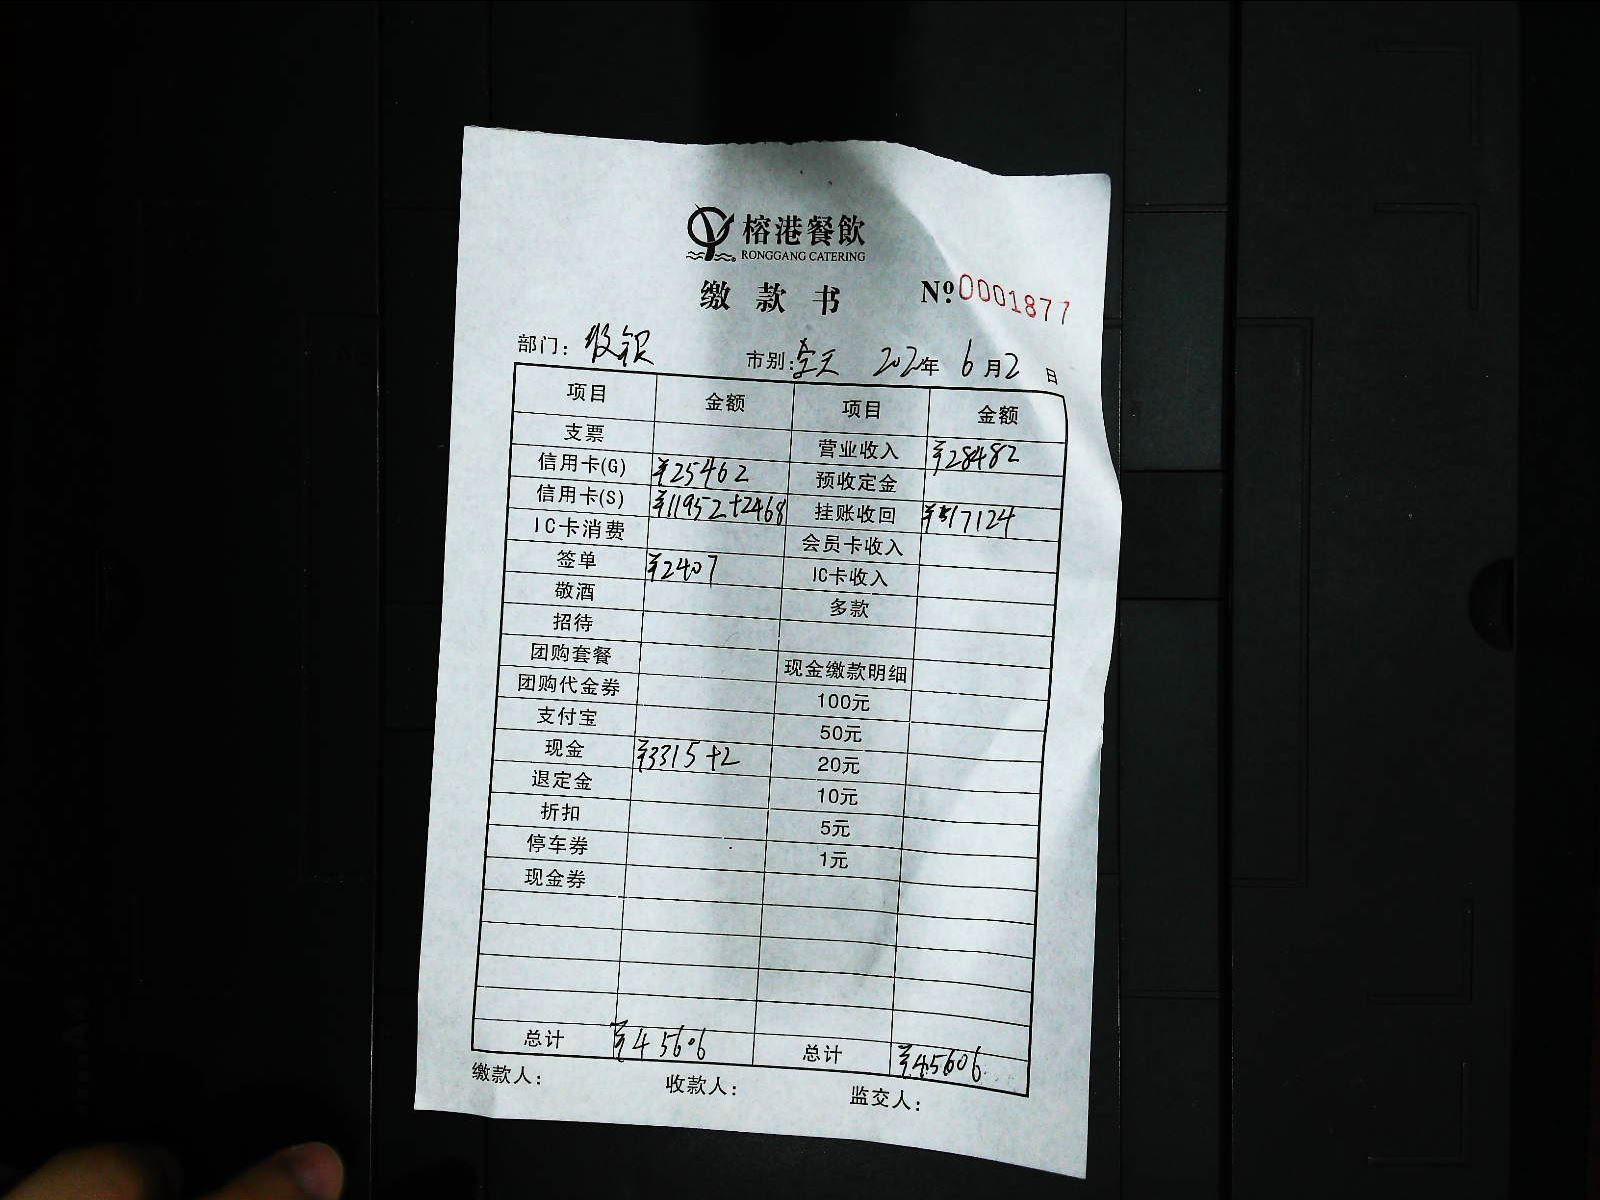 榕港餐飲
RONGGANG CATERING
缴款书 Nº 0001877
部门: 收银 市别: 全天 202年 6月2日
项目 金额 项目 金额
支票 营业收入 ¥28482
信用卡(G) ¥25462 预收定金
信用卡(S) ¥11952+2468 挂账收回 ¥17124
IC卡消费 会员卡收入
签单 ¥2407 IC卡收入
敬酒 多款
招待
团购套餐 现金缴款明细
团购代金券 100元
支付宝 50元
现金 ¥3315+2 20元
退定金 10元
折扣 5元
停车券 1元
现金券
总计 ¥45606 总计 ¥45606
缴款人: 收款人: 监交人: